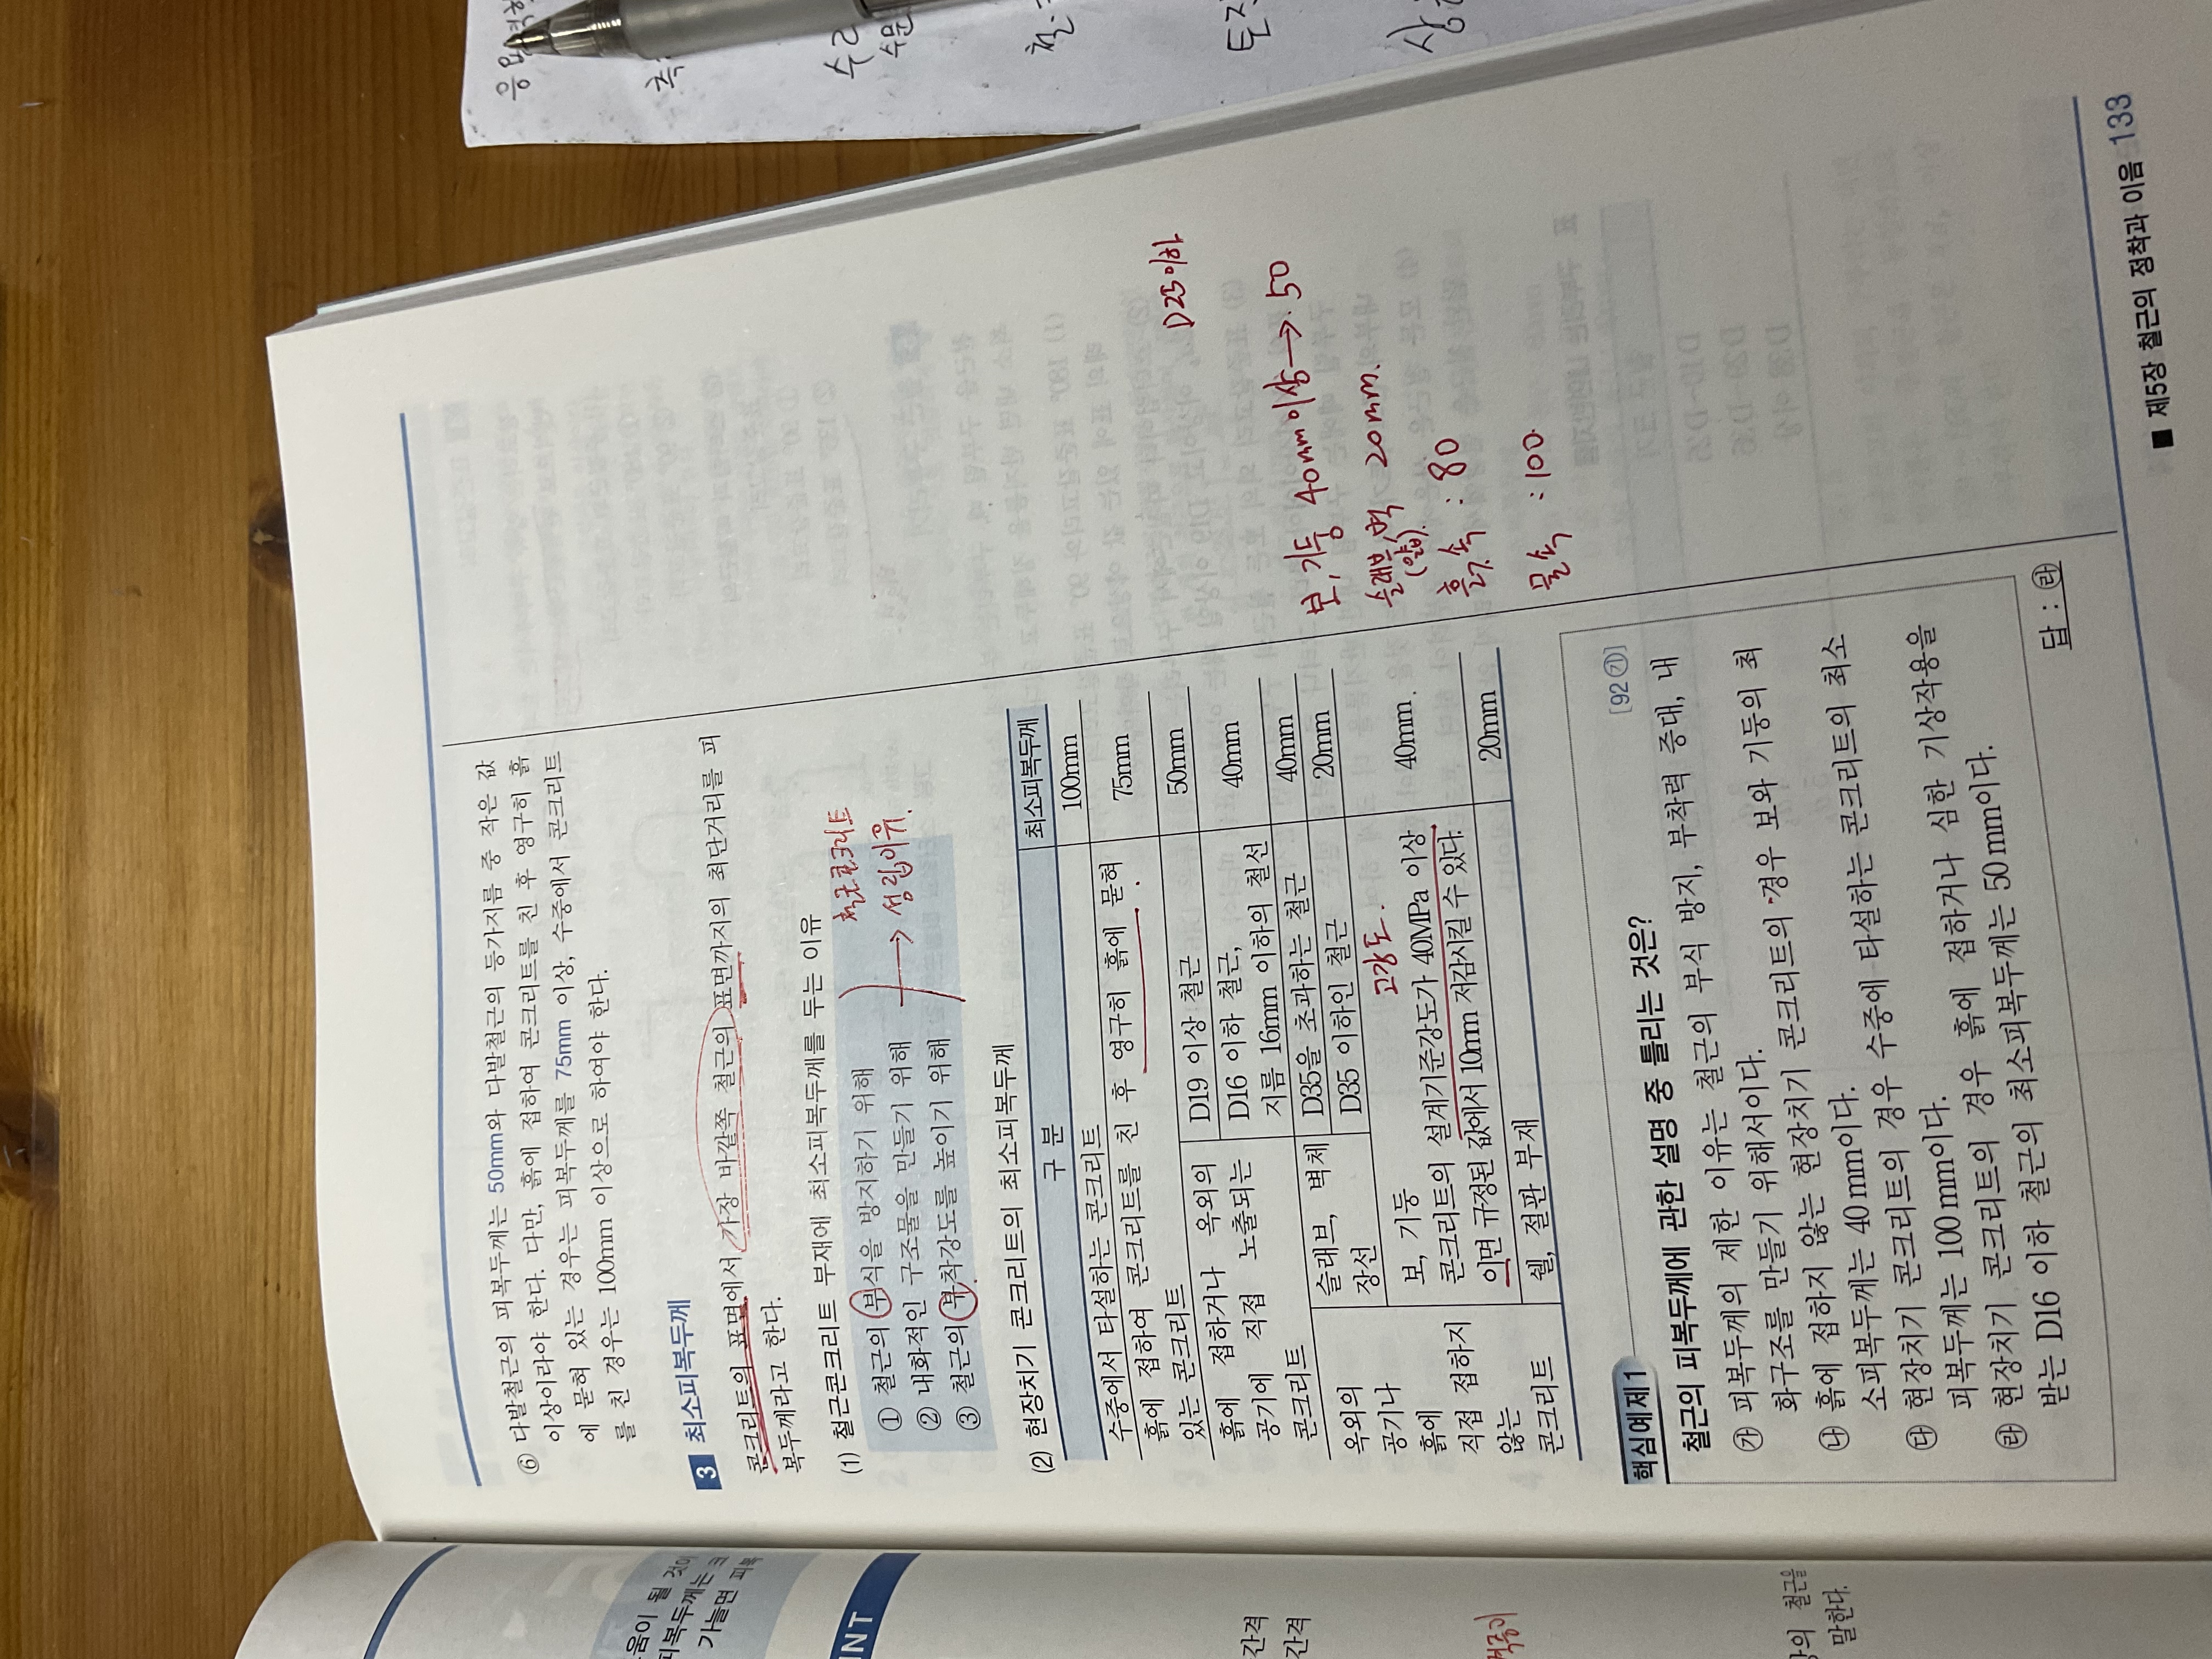 ⑥ 다발철근의 피복두께는 50mm와 다발철근의 등가지름 중 작은 값
이상이라야 한다. 다만, 흙에 접하여 콘크리트를 친 후 영구히 흙
에 묻혀 있는 경우는 피복두께를 75mm 이상, 수중에서 콘크리트
를 친 경우는 100mm 이상으로 하여야 한다.
3 최소피복두께
콘크리트의 표면에서 가장 바깥쪽 철근의 표면까지의 최단거리를 피
복두께라고 한다.
(1) 철근콘크리트 부재에 최소피복두께를 두는 이유
① 철근의 부식을 방지하기 위해
② 내화적인 구조물을 만들기 위해
③ 철근의 부착강도를 높이기 위해
철근콘크리트
→ 성립이유.
(2) 현장치기 콘크리트의 최소피복두께
구 분 최소피복두께
수중에서 타설하는 콘크리트 100mm
흙에 접하여 콘크리트를 친 후 영구히 흙에 묻혀
있는 콘크리트 75mm
흙에 접하거나 옥외의
공기에 직접 노출되는
콘크리트
D19 이상 철근 50mm
D16 이하 철근,
지름 16mm 이하의 철선 40mm
옥외의
공기나
흙에
직접 접하지
않는
콘크리트
슬래브, 벽체
장선
D35을 초과하는 철근 40mm
D35 이하인 철근 20mm
보, 기둥
고강도.
콘크리트의 설계기준강도가 40MPa 이상
이면 규정된 값에서 10mm 저감시킬 수 있다. 40mm
쉘, 절판 부재 20mm
D25이하
보, 기둥 40mm이상 → 50
슬래브, 벽 20mm.
(얇)
흙속 : 80
물속 : 100
핵심예제 1
[92㉮]
철근의 피복두께에 관한 설명 중 틀리는 것은?
㉮ 피복두께의 제한 이유는 철근의 부식 방지, 부착력 증대, 내
화구조를 만들기 위해서이다.
㉯ 흙에 접하지 않는 현장치기 콘크리트의 경우 보와 기둥의 최
소피복두께는 40mm이다.
㉰ 현장치기 콘크리트의 경우 수중에 타설하는 콘크리트의 최소
피복두께는 100mm이다.
㉱ 현장치기 콘크리트의 경우 흙에 접하거나 심한 기상작용을
받는 D16 이하 철근의 최소피복두께는 50mm이다.
답 : ㉱
■ 제5장 철근의 정착과 이음 133
움이 될 것이
피복두께는 크
가늘면 피복
INT
간격
간격
철근을
말한다.
수리
수문
철.
토질